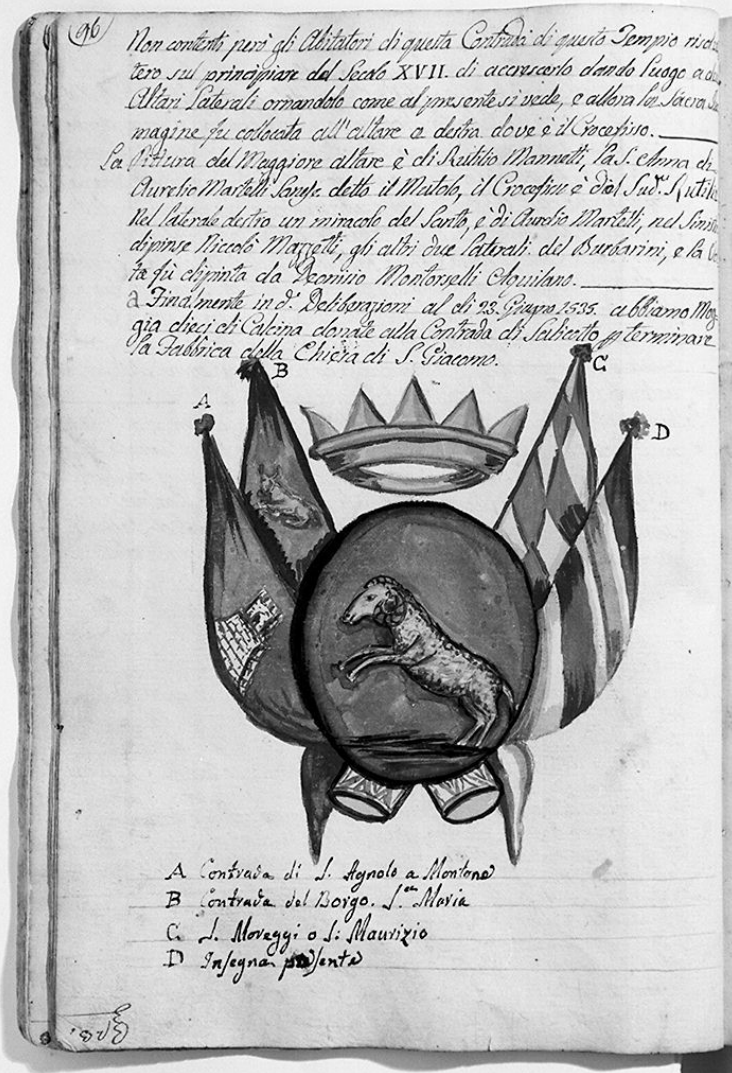 96
Non contenti però gli Abitatori di questa Contrada di questo Tempio
tero sul principiare del Secolo XVII. di accrescerlo dando luogo a
Altari Laterali ornandolo come al presente si vede, e allora la Sacra
magine fu collocata all'altare a destra dove è il Crocefisso.
La Pittura del Maggiore altare è di Rutilio Mannetti, la S. Anna di
Aurelio Martelli detto il Mutolo, il Crocefisso è del Sud.º Rutilio
Nel laterale destro un miracolo del Santo, è di Aurelio Martelli, nel
dipinse Niccolò Mazzetti, gli altri due laterali del Burbarini, e la
ta fù dipinta da Deonisio Montorselli Aquilano.
a Finalmente in d.º Deliberazioni al di 23. Giugno 1535. abbiamo Mog-
gia dieci di Calcina donate alla Contrada di Salicotto p terminare
la Fabbrica della Chiesa di S. Giacomo.
A
B
C
D
A Contrada di S. Agnolo a Montone
B Contrada del Borgo. S.ta Maria
C S. Moreggi o S: Maurizio
D Insegna presente